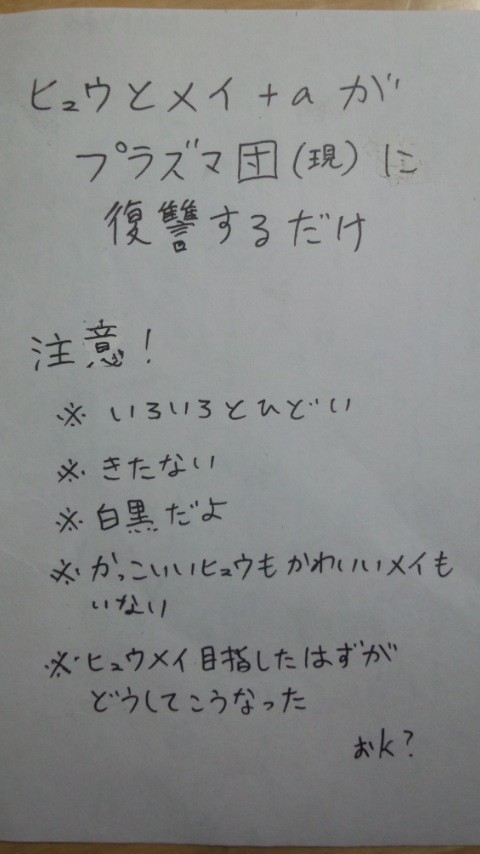 ヒュウとメイ+aが
プラズマ団(現)に
復讐するだけ
注意!
※いろいろとひどい
※きたない
※白黒だよ
※かっこいいヒュウもかわいいメイも
いない
※ヒュウメイ目指したはずが
どうしてこうなった
おk?